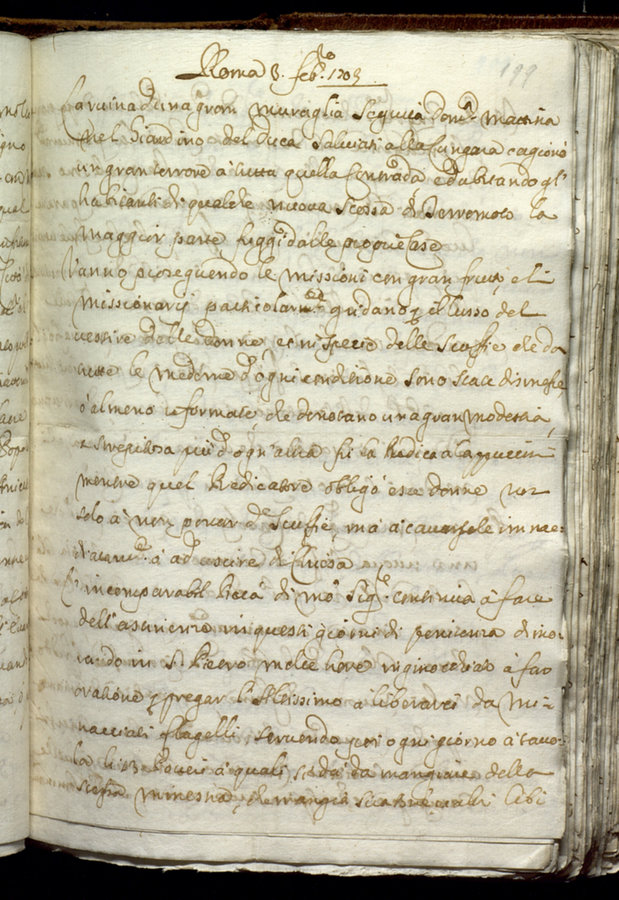 Roma 3. feb.ro 1703
199
La ruina d'una gran muraglia seguita dom.ca mattina
nel Giardino del Duca Salviati alla Lungara cagionò
un gran terrore à tutta quella Contrada, e dubitando gl'
habitanti di qualche nuova scossa di Terremoto la
maggior parte fuggì dalle proprie Case
Vanno proseguendo le missioni con gran frutto, e li
missionarij particolarm.te gridano p. il lusso del
vestire delle donne, et in specie delle scuffie che da
tutte le medeme d'ogni conditione sono state dismesse
ò almeno riformate, che denotano una gran modestia,
e strepitosa più d'ogn'altra fù la Predica à Cappuccini
mentre quel Predicatore obligò esse donne non
solo à non portar le scuffie, mà à cavarsele imme-
diatam.te ò ad uscire di Chiesa
L'incomparabil Pietà di N.ro Sig.re continua à fare
dell'astinenze in questi giorni di penitenza di mo-
rando in S. Pietro molte hore inginocchiato à far
oratione, e pregar l'Altissimo à liberarci da mi-
nacciati flagelli servendo poi ogni giorno à tavo-
la li 13 Poveri à quali, si dà da mangiare della
stessa minestra, che mangia Sua Santità, altri Cibi